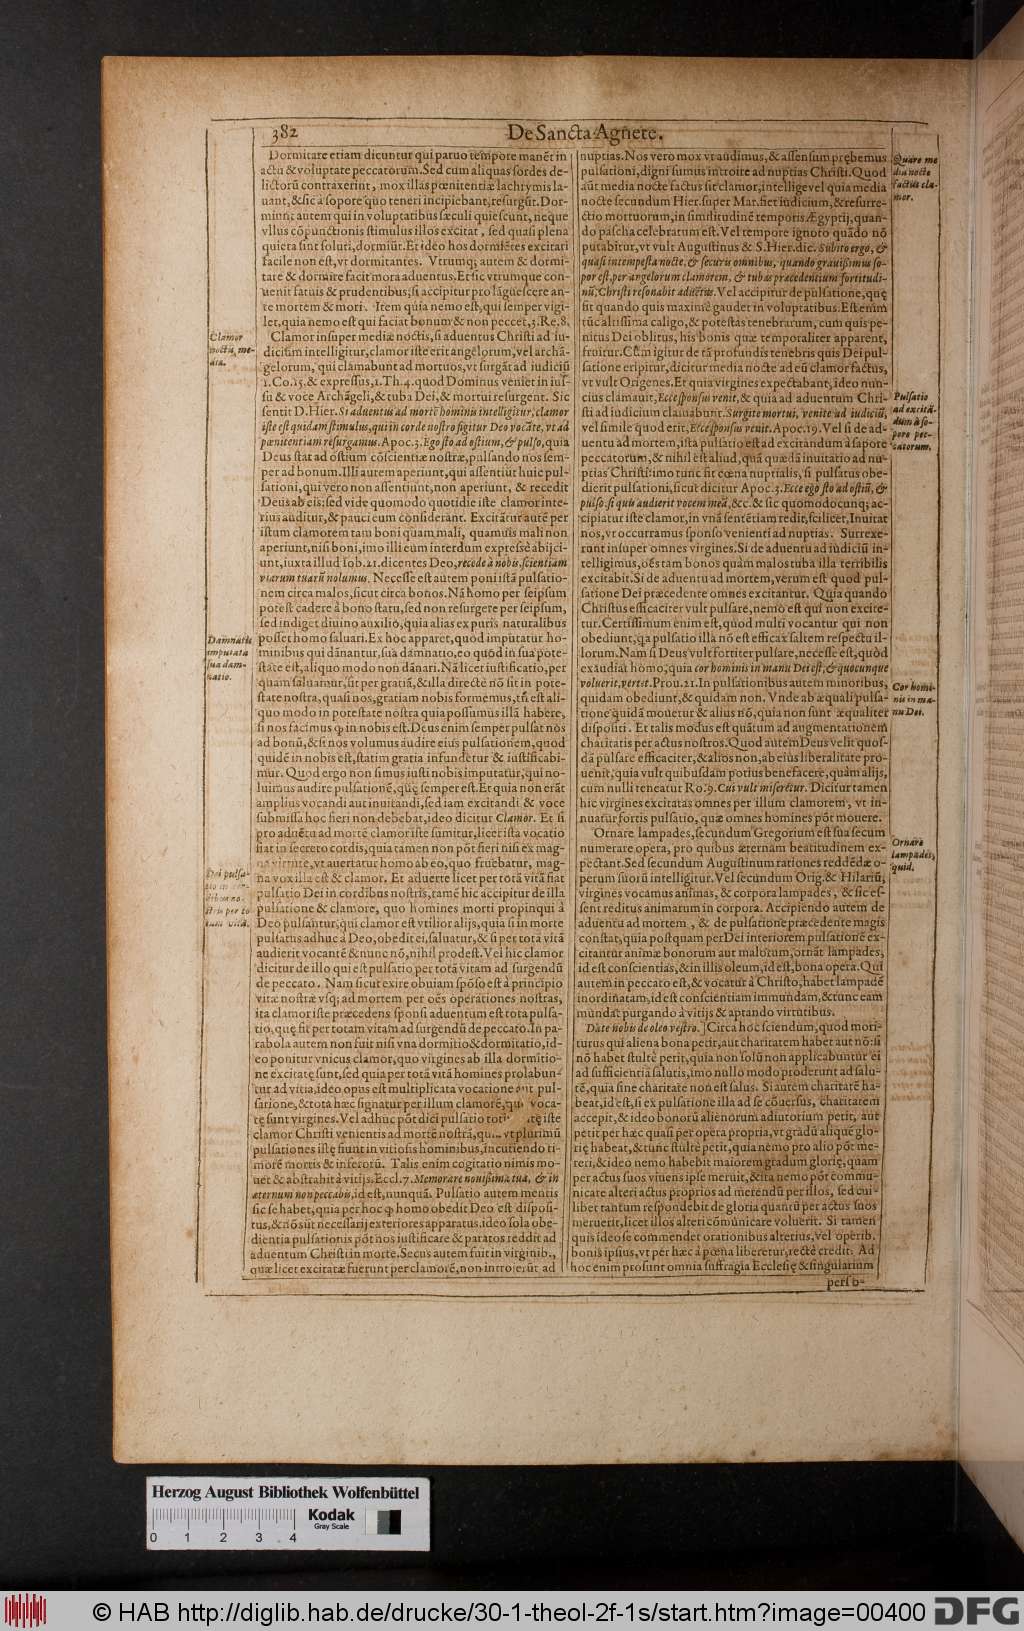 382
De Sancta Agnete.
Dormitare etiam dicuntur qui paruo tempore manēt in
actu & voluptate peccatorum. Sed cum aliquas sordes de-
lictorū contraxerint, mox illas pœnitentiæ lachrymis la-
uant, & sic à sopore quo teneri incipiebant, resurgūt. Dor-
miunt autem qui in voluptatibus sæculi quiescunt, neque
vllus cōpunctionis stimulus illos excitat, sed quasi plena
quiete sint soluti, dormiūt. Et ideo hos dormiētes excitari
facile non est, vt dormitantes. Vtrumq; autem & dormi-
tare & dormire facit mora aduentus. Et sic vtrumque con-
uenit fatuis & prudentibus, si accipitur pro lāguescere an-
te mortem & mori. Item quia nemo est, qui semper vigi-
let, quia nemo est qui faciat bonum & non peccet, 3. Re. 8.
Clamor insuper mediæ noctis, si aduentus Christi ad iu-
dicium intelligitur, clamor iste erit angelorum, vel archā-
gelorum, qui clamabunt ad mortuos, vt surgāt ad iudiciū
1. Co. 15. & expressius, 1. Th. 4. quod Dominus veniet in ius-
su & voce Archāgeli, & tuba Dei, & mortui resurgent. Sic
sentit D. Hier. Si aduentus ad mortē hominis intelligitur, clamor
iste est quidam stimulus, qui in corde nostro figitur Deo vocāte, vt ad
pœnitentiam resurgamus. Apoc. 3. Ego sto ad ostium, & pulso, quia
Deus stat ad ostium cōscientiæ nostræ, pulsando nos sem-
per ad bonum. Illi autem aperiunt, qui assentiūt huic pul-
sationi, qui vero non assentiunt, non aperiunt, & recedit
Deus ab eis: sed vide quomodo quotidie iste clamor inte-
rius auditur, & pauci eum considerant. Excitātur autē per
istum clamorem tam boni quam mali, quamuis mali non
aperiunt, nisi boni, imo illi eum interdum expressè abijci-
unt, iuxta illud Iob. 21. dicentes Deo, recede à nobis, scientiam
viarum tuarū nolumus. Necesse est autem poni istā pulsatio-
nem circa malos, sicut circa bonos. Nā homo per seipsum
potest cadere à bono statu, sed non resurgere per seipsum,
sed indiget diuino auxilio, quia alias ex puris naturalibus
posset homo saluari. Ex hoc apparet, quod imputatur ho-
minibus qui dānantur, sua dānatio, eo quōd in sua pote-
state est, aliquo modo non dānari. Nā licet iustificatio, per
quam saluamur, sit per gratiā, & illa directè nō sit in pote-
state nostra, quasi nos, gratiam nobis formemus, tn̄ est ali-
quo modo in potestate nostra quia possumus illā habere,
si nos facimus ꝙ in nobis est. Deus enim semper pulsat nos
ad bonū, & si nos volumus audire eius pulsationem, quod
quidē in nobis est, statim gratia infundetur & iustificabi-
mur. Quod ergo non simus iusti nobis imputatur, qui no-
luimus audire pulsationē, quę semper est. Et quia non erāt
amplius vocandi aut inuitandi, sed iam excitandi & voce
submissa hoc fieri non debebat, ideo dicitur Clamor. Et si
pro aduētu ad mortē clamor iste sumitur, licet ista vocatio
fiat in secreto cordis, quia tamen non pōt fieri nisi ex mag-
na virtute, vt auertatur homo ab eo, quo fruebatur, mag-
na vox illa est & clamor. Et aduerte licet per totā vitā fiat
pulsatio Dei in cordibus nostris, tamē hic accipitur de illa
pulsatione & clamore, quo homines morti propinqui à
Deo pulsantur, qui clamor est vtilior alijs, quia si in morte
pulsatus adhuc à Deo, obedit ei, saluatur, & si per totā vitā
audierit vocantē & nunc nō, nihil prodest. Vel hic clamor
dicitur de illo qui est pulsatio per totā vitam ad surgendū
de peccato. Nam sicut exire obuiam spōso est à principio
vitæ nostræ vsq; ad mortem per oēs operationes nostras,
ita clamor iste præcedens sponsi aduentum est tota pulsa-
tio, quę fit per totam vitam ad surgendū de peccato. In pa-
rabola autem non fuit nisi vna dormitio & dormitatio, id-
eo ponitur vnicus clamor, quo virgines ab illa dormitio-
ne excitatę sunt, sed quia per totā vitā homines prolabun-
tur ad vitia, ideo opus est multiplicata vocatione aut pul-
satione, & tota hæc signatur per illum clamorē, quo voca-
tę sunt virgines. Vel adhuc pōt dici pulsatio iste
clamor Christi venientis ad mortē nostrā, vt plurimū
pulsationes istę fiunt in vitiosis hominibus, incutiendo ti-
morē mortis & inferorū. Talis enim cogitatio nimis mo-
uet & abstrahit à vitijs. Eccl. 7. Memorare nouissima tua, & in
æternum non peccabis, id est, nunquā. Pulsatio autem mentis
sic se habet, quia per hoc ꝙ homo obedit Deo est disposi-
tus, & nō sūt necessarij exteriores apparatus. ideo sola obe-
dientia pulsationis pōt nos iustificare & paratos reddit ad
aduentum Christi in morte. Secus autem fuit in virginib.,
quæ licet excitatæ fuerunt per clamorē, non introierūt ad
nuptias. Nos vero mox vt audimus, & assensum prębemus
pulsationi, digni sumus introire ad nuptias Christi. Quod
aūt media nocte factus sit clamor, intellige vel quia media
nocte secundum Hier. super Mar. fiet iudicium, & resurre-
ctio mortuorum, in similitudinē temporis Ægyptij, quan-
do pascha celebratum est. Vel tempore ignoto quādo nō
putabitur, vt vult Augustinus & S. Hier. dic. Subito ergo, &
quasi intempesta nocte, & securis omnibus, quando grauissimus so-
por est, per angelorum clamorem, & tubas præcedentium fortitudi-
nū, Christi resonabit aduētus. Vel accipitur de pulsatione, quę
fit quando quis maximè gaudet in voluptatibus. Est enim
tūc altissima caligo, & potestas tenebrarum, cum quis pe-
nitus Dei oblitus, his bonis quæ temporaliter apparent,
fruitur. Cūm igitur de tā profundis tenebris quis Dei pul-
satione eripitur, dicitur media nocte ad eū clamor factus,
vt vult Origenes. Et quia virgines expectabant, ideo nun-
cius clamauit, Ecce sponsus venit, & quia ad aduentum Chri-
sti ad iudicium clamabunt. Surgite mortui, venite ad iudiciū,
vel simile quod erit, Ecce sponsus venit. Apoc. 19. Vel si de ad-
uentu ad mortem, ista pulsatio est ad excitandum à sopore
peccatorum, & nihil est aliud, quā quædā inuitatio ad nu-
ptias Christi: imo tunc fit cœna nuptialis, si pulsatus obe-
dierit pulsationi, sicut dicitur Apoc. 3. Ecce ego sto ad ostiū, &
pulso. si quis audierit vocem meā, &c. & sic quomodocunq; ac-
cipiatur iste clamor, in vnā sentētiam redit, scilicet, Inuitat
nos, vt occurramus sponso venienti ad nuptias. Surrexe-
runt insuper omnes virgines. Si de aduentu ad iudiciū in-
telligimus, oēs tam bonos quàm malos tuba illa terribilis
excitabit. Si de aduentu ad mortem, verum est quod pul-
satione Dei præcedente omnes excitantur. Quia quando
Christus efficaciter vult pulsare, nemo est qui non excite-
tur. Certissimum enim est, quod multi vocantur qui non
obediunt, qa pulsatio illa nō est efficax saltem respectu il-
lorum. Nam si Deus vult fortiter pulsare, necesse est, quòd
exaudiat homo, quia cor hominis in manu Dei est, & quocunque
voluerit, vertet. Prou. 21. In pulsationibus autem minoribus,
quidam obediunt, & quidam non. Vnde ab æquali pulsa-
tione quidā mouetur & alius nō, quia non sunt æqualiter
dispositi. Et talis modus est quātum ad augmentationem
charitatis per actus nostros. Quod autem Deus velit quos-
dā pulsare efficaciter, & alios non, ab eius liberalitate pro-
uenit, quia vult quibusdam potius benefacere, quàm alijs,
cum nulli teneatur Ro. 9. Cui vult miseretur. Dicitur tamen
hic virgines excitatas omnes per illum clamorem, vt in-
nuatur fortis pulsatio, quæ omnes homines pōt mouere.
Ornare lampades, secundum Gregorium est sua secum
numerare opera, pro quibus æternam beatitudinem ex-
pectant. Sed secundum Augustinum rationes reddēdæ o-
perum suorū intelligitur. Vel secundum Orig. & Hilariū,
virgines vocamus animas, & corpora lampades, & sic es-
sent reditus animarum in corpora. Accipiendo autem de
aduentu ad mortem, & de pulsatione præcedente magis
constat, quia postquam per Dei interiorem pulsationē ex-
citantur animæ bonorum aut malorum, ornāt lampades,
id est conscientias, & in illis oleum, id est, bona opera. Qui
autem in peccato est, & vocatur à Christo, habet lampadē
inordinatam, id est conscientiam immundam, & tunc eam
mundat purgando à vitijs & aptando virtutibus.
Date nobis de oleo vestro.] Circa hoc sciendum, quod mori-
turus qui aliena bona petit, aut charitatem habet aut nō: si
nō habet stultè petit, quia non solū non applicabuntur ei
ad sufficientiā salutis, imo nullo modo proderunt ad salu-
tē, quia sine charitate non est salus. Si autem charitatē ha-
beat, id est, si ex pulsatione illa ad se cōuersus, charitatem
accepit, & ideo bonorū alienorum adiutorium petit, aut
petit per hæc quasi per opera propria, vt gradū aliquē glo-
rię habeat, & tunc stultè petit, quia nemo pro alio pōt me-
reri, & ideo nemo habebit maiorem gradum glorię, quam
per actus suos viuens ipse meruit, & ita nemo pōt commu-
nicare alteri actus proprios ad merendū per illos, sed cui-
libet tantum respondebit de gloria quantū per actus suos
meruerit, licet illos alteri cōmunicare voluerit. Si tamen
quis ideo se commendet orationibus alterius, vel operib.
bonis ipsius, vt per hæc à pœna liberetur, rectè credit. Ad
hoc enim prosunt omnia suffragia Ecclesię & singularium
perso-
Clamor
noctu, me-
dia.
Damnatio
imputata
sua dam-
natio.
Dei pulsa-
tio in cor-
dibus no-
stris per to
tam vitā.
Quare me
dia nocte
factus cla-
mor.
Pulsatio
ad excitā-
dum à so-
pore pec-
catorum.
Cor homi-
nis in ma-
nu Dei.
Ornare
lampades,
quid.
Herzog August Bibliothek Wolfenbüttel
Kodak
Gray Scale
0 1 2 3 4
© HAB http://diglib.hab.de/drucke/30-1-theol-2f-1s/start.htm?image=00400
DFG